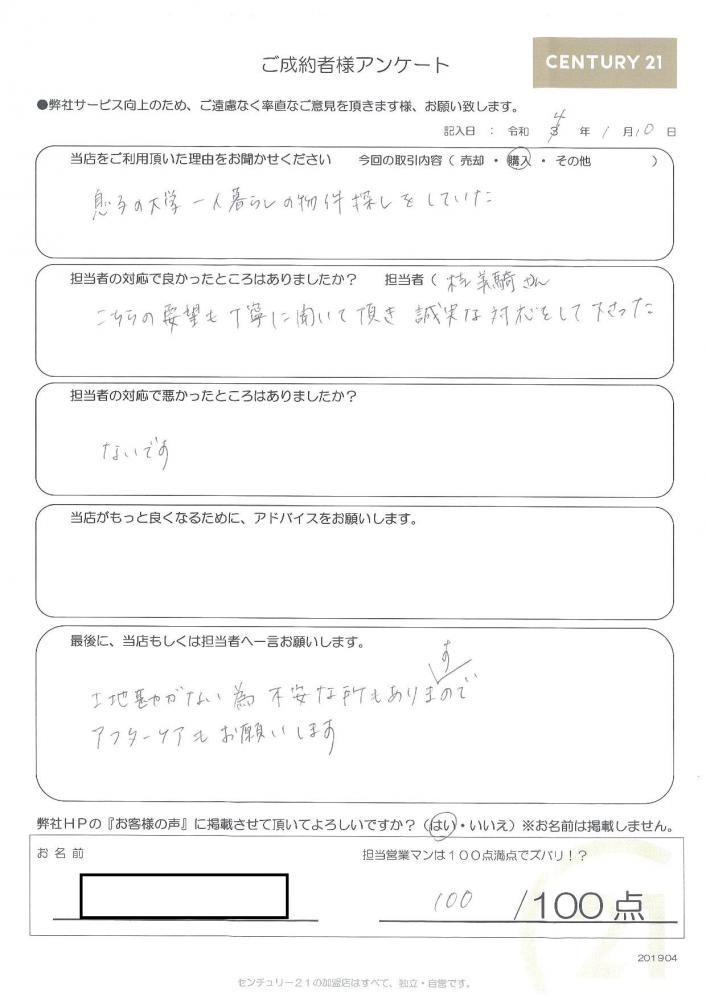 CENTURY 21
ご成約者様アンケート
●弊社サービス向上のため、ご遠慮なく率直なご意見を頂きます様、お願い致します。
記入日 : 令和 4 年 1 月 10 日
当店をご利用頂いた理由をお聞かせください 今回の取引内容 ( 売却 ・ 購入 ・ その他 )
息子の大学 一人暮らしの物件探しをしていた
担当者の対応で良かったところはありましたか? 担当者 ( さん
こちらの要望も丁寧に聞いて頂き 誠実な対応をして下さった
担当者の対応で悪かったところはありましたか?
ないです
当店がもっと良くなるために、アドバイスをお願いします。
最後に、当店もしくは担当者へ一言お願いします。
土地勘がない為 不安な所もありますので
アフターケアもお願いします
弊社HPの『お客様の声』に掲載させて頂いてよろしいですか?(はい・いいえ)※お名前は掲載しません。
お 名 前
担当営業マンは100点満点でズバリ!?
100 /100点
21
201904
センチュリー21の加盟店はすべて、独立・自営です。